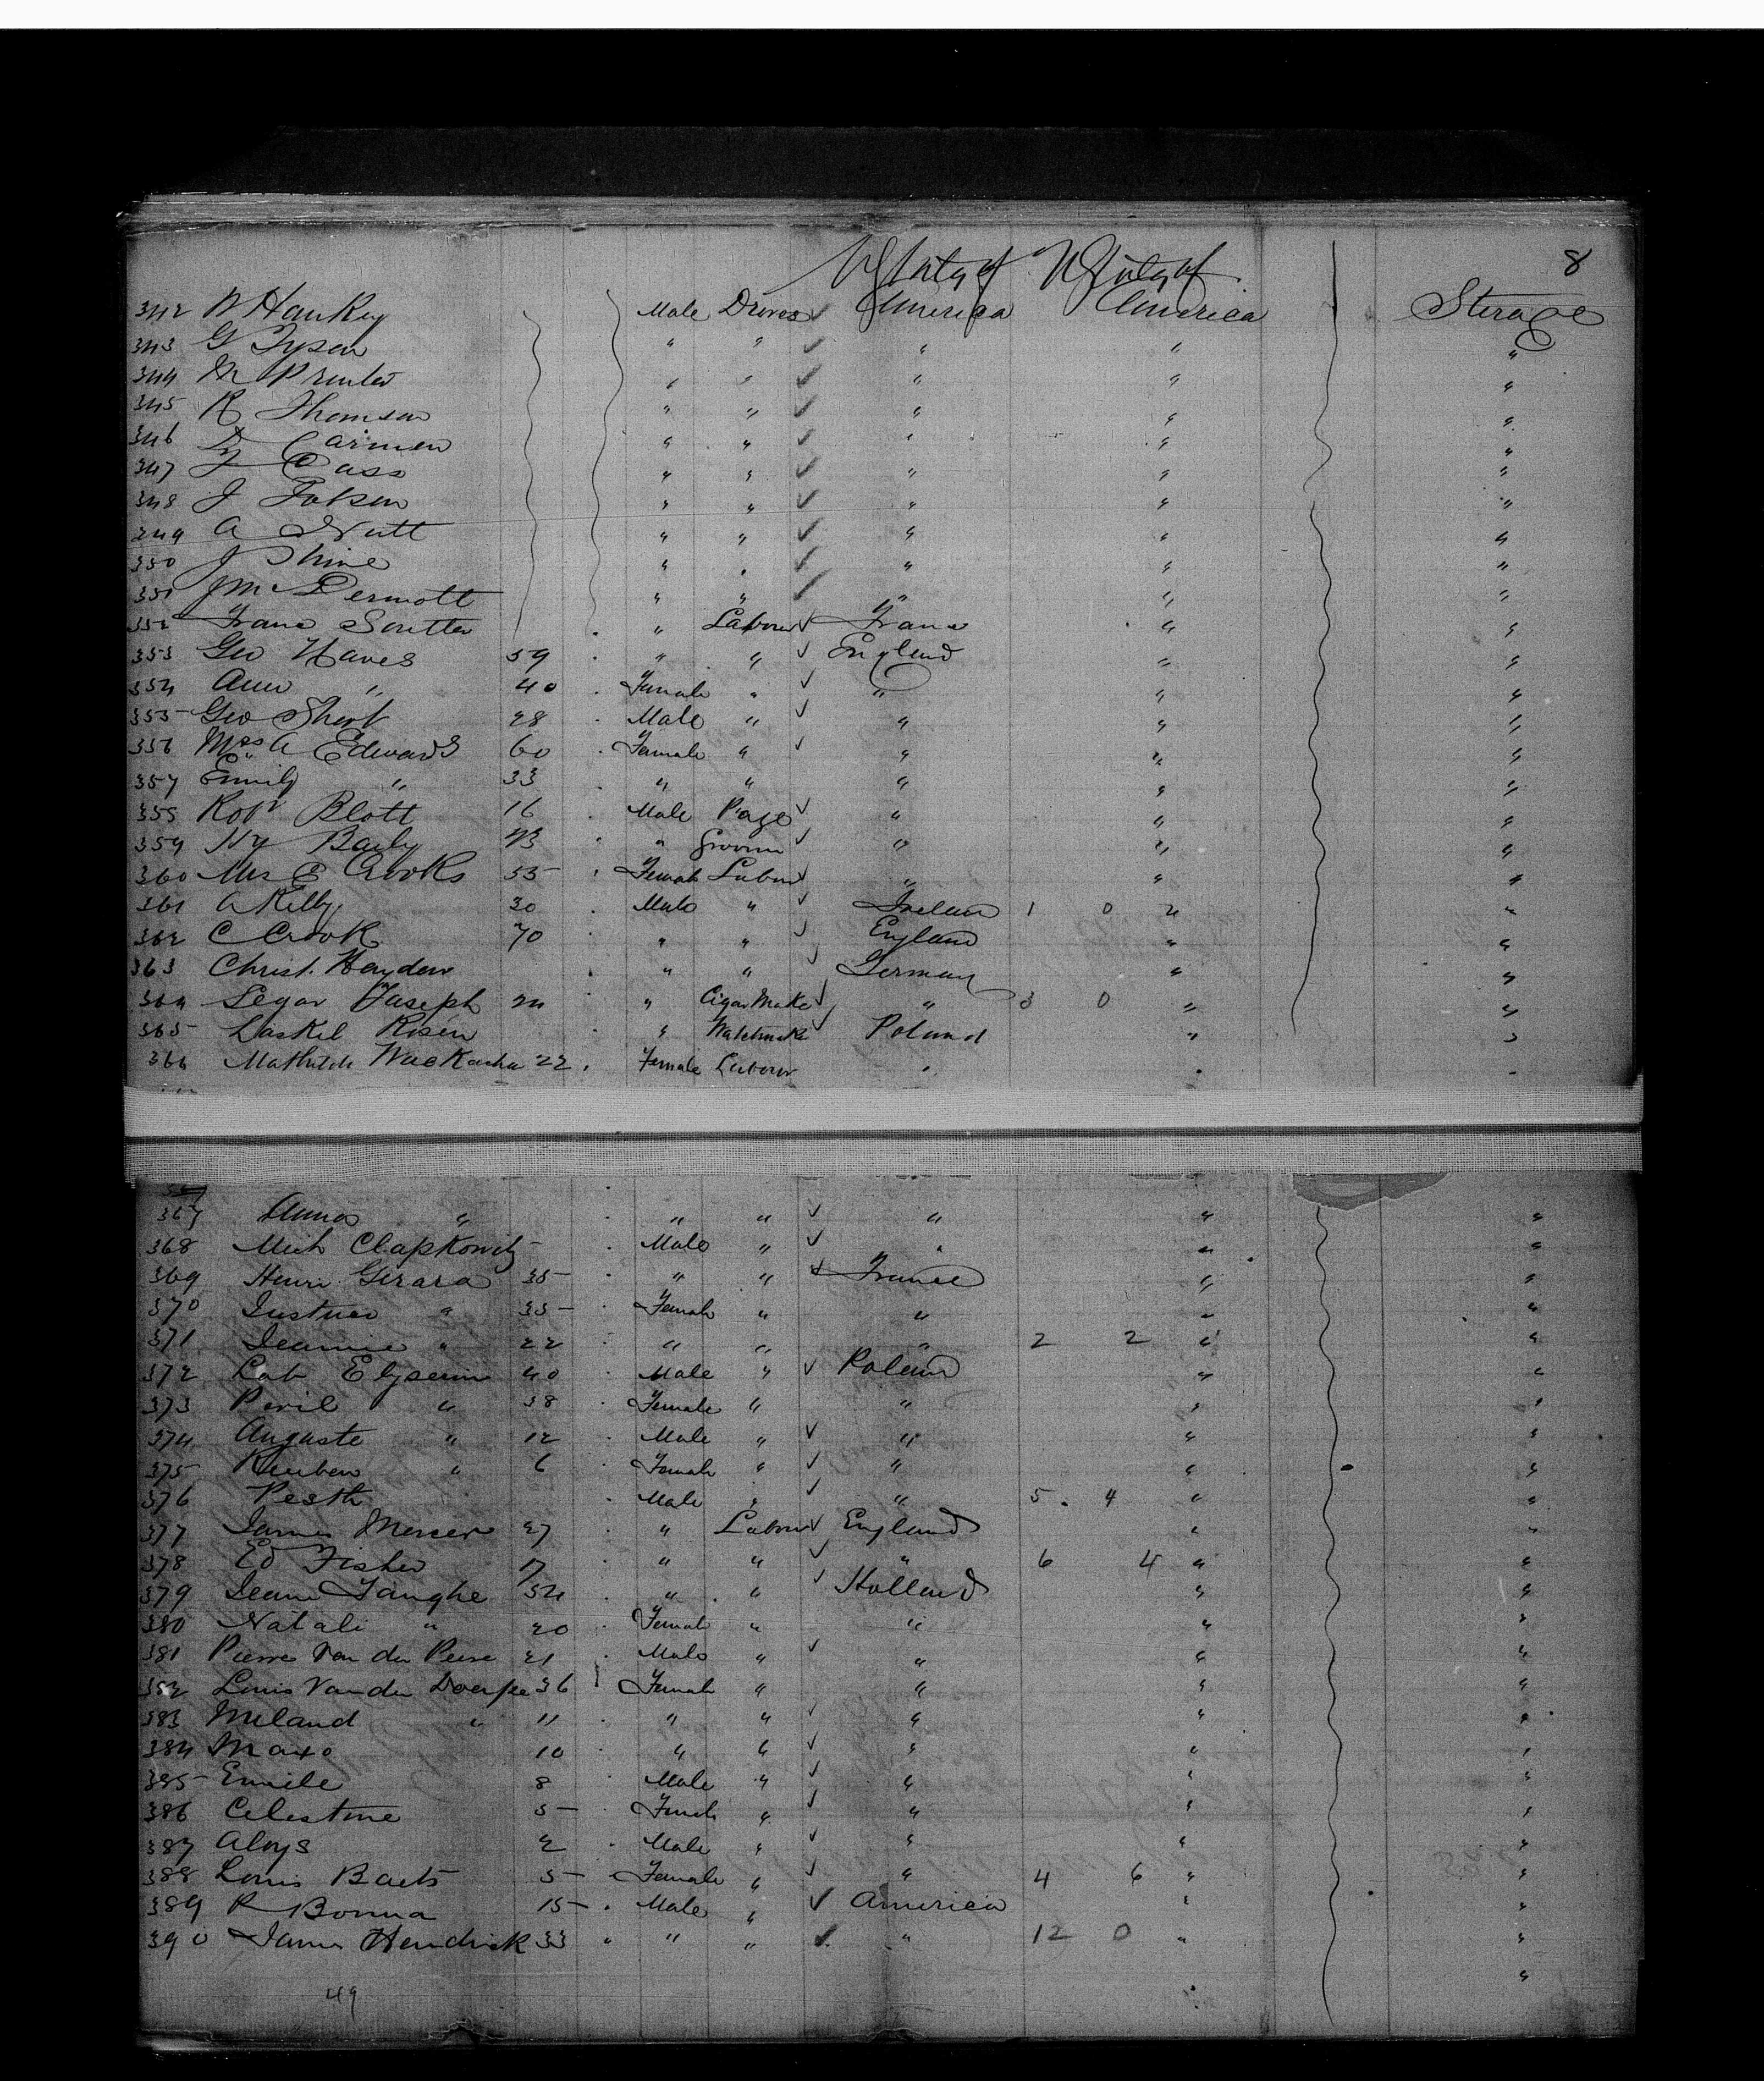 8
U States of U States of
342 W Hankey Male Drover America America Sterage
343 G Tyson " " " " "
344 M Printer " " " " "
345 R Thomson " " " " "
346 Carmen " " " " "
347 Cass " " " " "
348 J Fokson " " " " "
349 A Nutt " " " " "
350 J Shine " " " " "
351 J McDermott " " " " "
352 Franc " Labour Franc " "
353 Geo Haves 59 " " England " "
354 Ann " 40 Female " " " "
355 Geo Short 28 Male " " " "
356 Mrs A Edwards 60 Female " " " "
357 Emily " 33 " " " " "
358 Robt Blott 16 Male Page " " "
359 Hy Baily 23 " Groom " " "
360 Mrs E Crooks 55 Female Labour " " "
361 A Kelly 30 Male " Ireland 1 0 " "
362 C Crook 70 " " England " "
363 Christ. Hayden " " Germany " "
364 Segar Joseph 24 " Cigar Make " 3 0 " "
365 Laskel Rosen " Watchmake Poland " "
366 Mathilde 22 Female Labour " " "
367 " " " " " "
368 Mich Clapkowitz Male " " " "
369 Henri Gerara 35 " " France " "
370 " 35 Female " " " "
371 Jeannie " 22 " " " 2 2 " "
372 Lab 40 Male " Poland " "
373 Peril " 38 Female " " " "
374 Auguste " 12 Male " " " "
375 Reuben " 6 Female " " " "
376 Pesth Male " " 5 . 4 " "
377 James Mercer 27 " Labour England " "
378 Ed Fisher 17 " " " 6 4 " "
379 Jean Tanghe 54 " " Holland " "
380 Natali " 20 Female " " " "
381 Pierre Van der Peere 21 Male " " " "
382 Louis Van der 36 Female " " " "
383 Meland " 11 " " " " "
384 10 " " " " "
385 Emile 8 Male " " " "
386 Celestine 5 Female " " " "
387 Aloys 2 Male " " " "
388 Louis Baets 5 Female " " 4 6 " "
389 R Bonna 15 Male " America " "
390 James Hendrick 33 " " " 12 0 " "
"
49